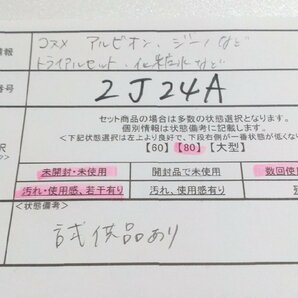 情報 コスメ アルビオン、ジーノなど
トライアルセット、化粧水など
番号 2J24A
セット商品の場合は多数の状態選択となります。
個別情報は状態備考に記載します。
<下記状態選択は左上より良好で、下段右側が一番状態が低くな
択 【60】 【80】 【大型】
未開封・未使用 開封品で未使用 数回使
汚れ・使用感、若干有り 汚れ、使用感有り
<状態備考>
試供品あり